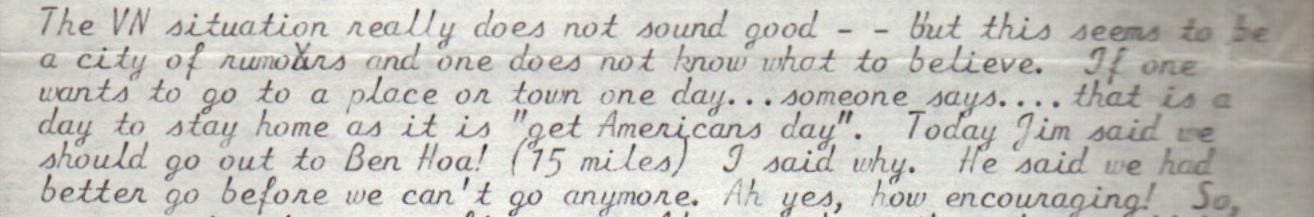 The VN situation really does not sound good - - but this seems to be
a city of rumours and one does not know what to believe. If one
wants to go to a place or town one day...someone says....that is a
day to stay home as it is "get Americans day". Today Jim said we
should go out to Ben Hoa! (15 miles) I said why. He said we had
better go before we can't go anymore. Ah yes, how encouraging! So,